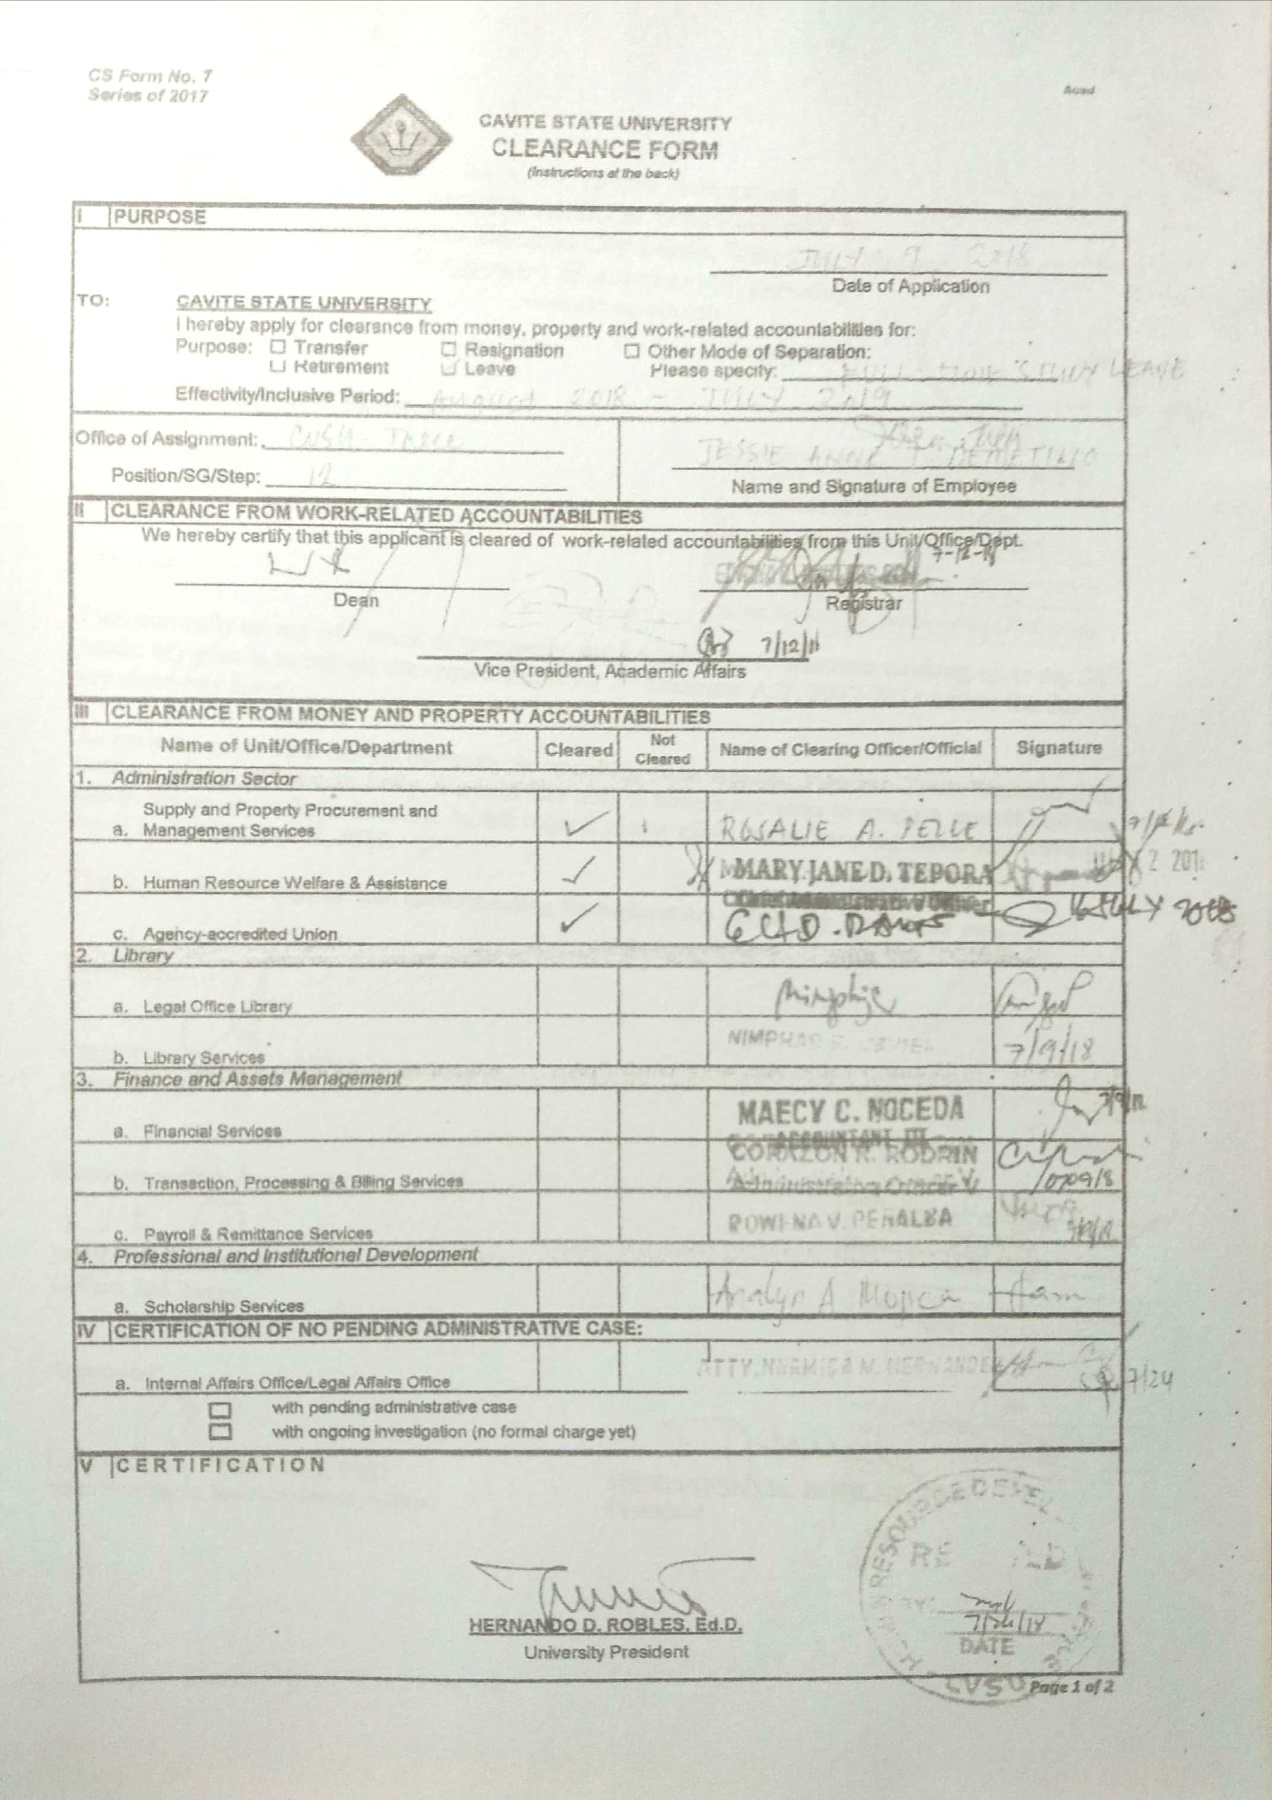 CS Form No. 7
Series of 2017
Acad
CAVITE STATE UNIVERSITY
CLEARANCE FORM
(Instructions at the back)
I PURPOSE
JULY 9 2018
Date of Application
TO: CAVITE STATE UNIVERSITY
I hereby apply for clearance from money, property and work-related accountabilities for:
Purpose: Transfer Resignation Other Mode of Separation:
Retirement Leave Please specify: FULL-TIME STUDY LEAVE
Effectivity/Inclusive Period: August 2018 - JULY 2019
Office of Assignment:
Position/SG/Step: 12
JESSIE ANNE T. DEMETILLO
Name and Signature of Employee
II CLEARANCE FROM WORK-RELATED ACCOUNTABILITIES
We hereby certify that this applicant is cleared of work-related accountabilities from this Unit/Office/Dept.
7-12-18
Dean Registrar
7/12/18
Vice President, Academic Affairs
III CLEARANCE FROM MONEY AND PROPERTY ACCOUNTABILITIES
Name of Unit/Office/Department Cleared Not Cleared Name of Clearing Officer/Official Signature
1. Administration Sector
Supply and Property Procurement and
a. Management Services ROSALIE A.
b. Human Resource Welfare & Assistance MARY JANE D. TEPORA
c. Agency-accredited Union JULY 2018
2. Library
a. Legal Office Library
b. Library Services 7/9/18
3. Finance and Assets Management
a. Financial Services MAECY C. NOCEDA
ACCOUNTANT III
CORAZON R. RODRIN
b. Transaction, Processing & Billing Services Administrative Officer V
c. Payroll & Remittance Services ROWENA V. PENALBA
4. Professional and Institutional Development
a. Scholarship Services Analyn A Mojica
IV CERTIFICATION OF NO PENDING ADMINISTRATIVE CASE:
a. Internal Affairs Office/Legal Affairs Office ATTY. M. 7/24
with pending administrative case
with ongoing investigation (no formal charge yet)
V CERTIFICATION
HERNANDO D. ROBLES, Ed.D.
University President
7/26/18
DATE
Page 1 of 2